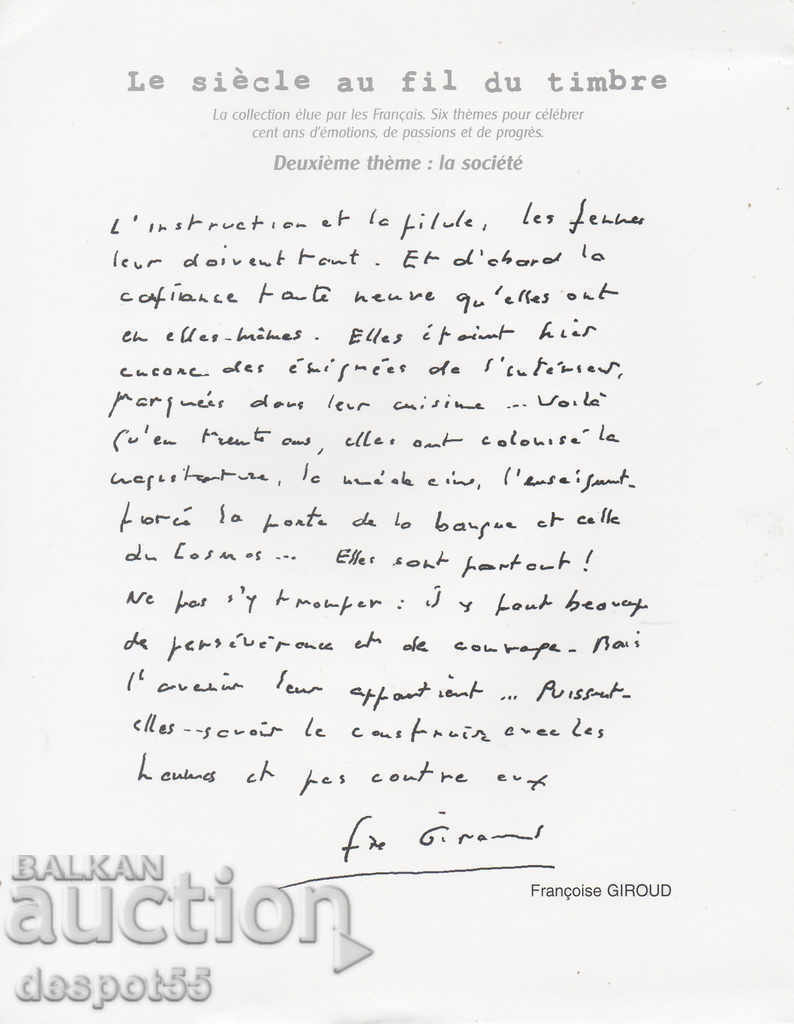 Le siècle au fil du timbre
La collection élue par les Français. Six thèmes pour célébrer
cent ans d'émotions, de passions et de progrès.
Deuxième thème : la société
L'instruction et la pilule, les femmes
leur doivent tout. Et d'abord la
confiance toute neuve qu'elles ont
en elles-mêmes. Elles étaient hier
encore des émigrées de l'intérieur,
parquées dans leur cuisine... Voilà
qu'en trente ans, elles ont colonisé la
magistrature, la médecine, l'enseignement
forcé la porte de la banque et celle
du Cosmos... Elles sont partout !
Ne pas s'y tromper : il y faut beaucoup
de persévérance et de courage. Mais
l'avenir leur appartient... Puissent-
elles savoir le construire avec les
hommes et pas contre eux
Fse Giroud
Françoise GIROUD
BALKAN
auction
despot55